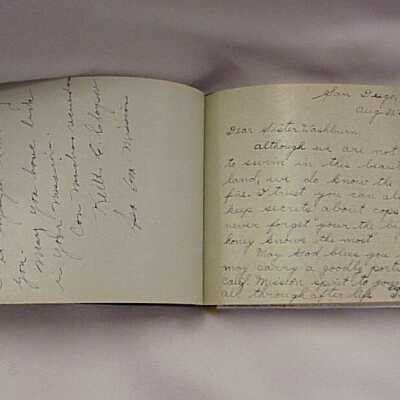 you
may you have luck
in your mission.
Con muchos recuerdos
Keith C.
So. Am. Mission
San Diego,
Aug 20
Dear Sister Washburn,
although we are not
to swim in this beaut
land, we do know the
I trust you can al
keeps secrets about cops
never forget "your the b
honey knows the most
May God bless you
may carry a goodly port
Calif. Mission spirit to you
all through after life